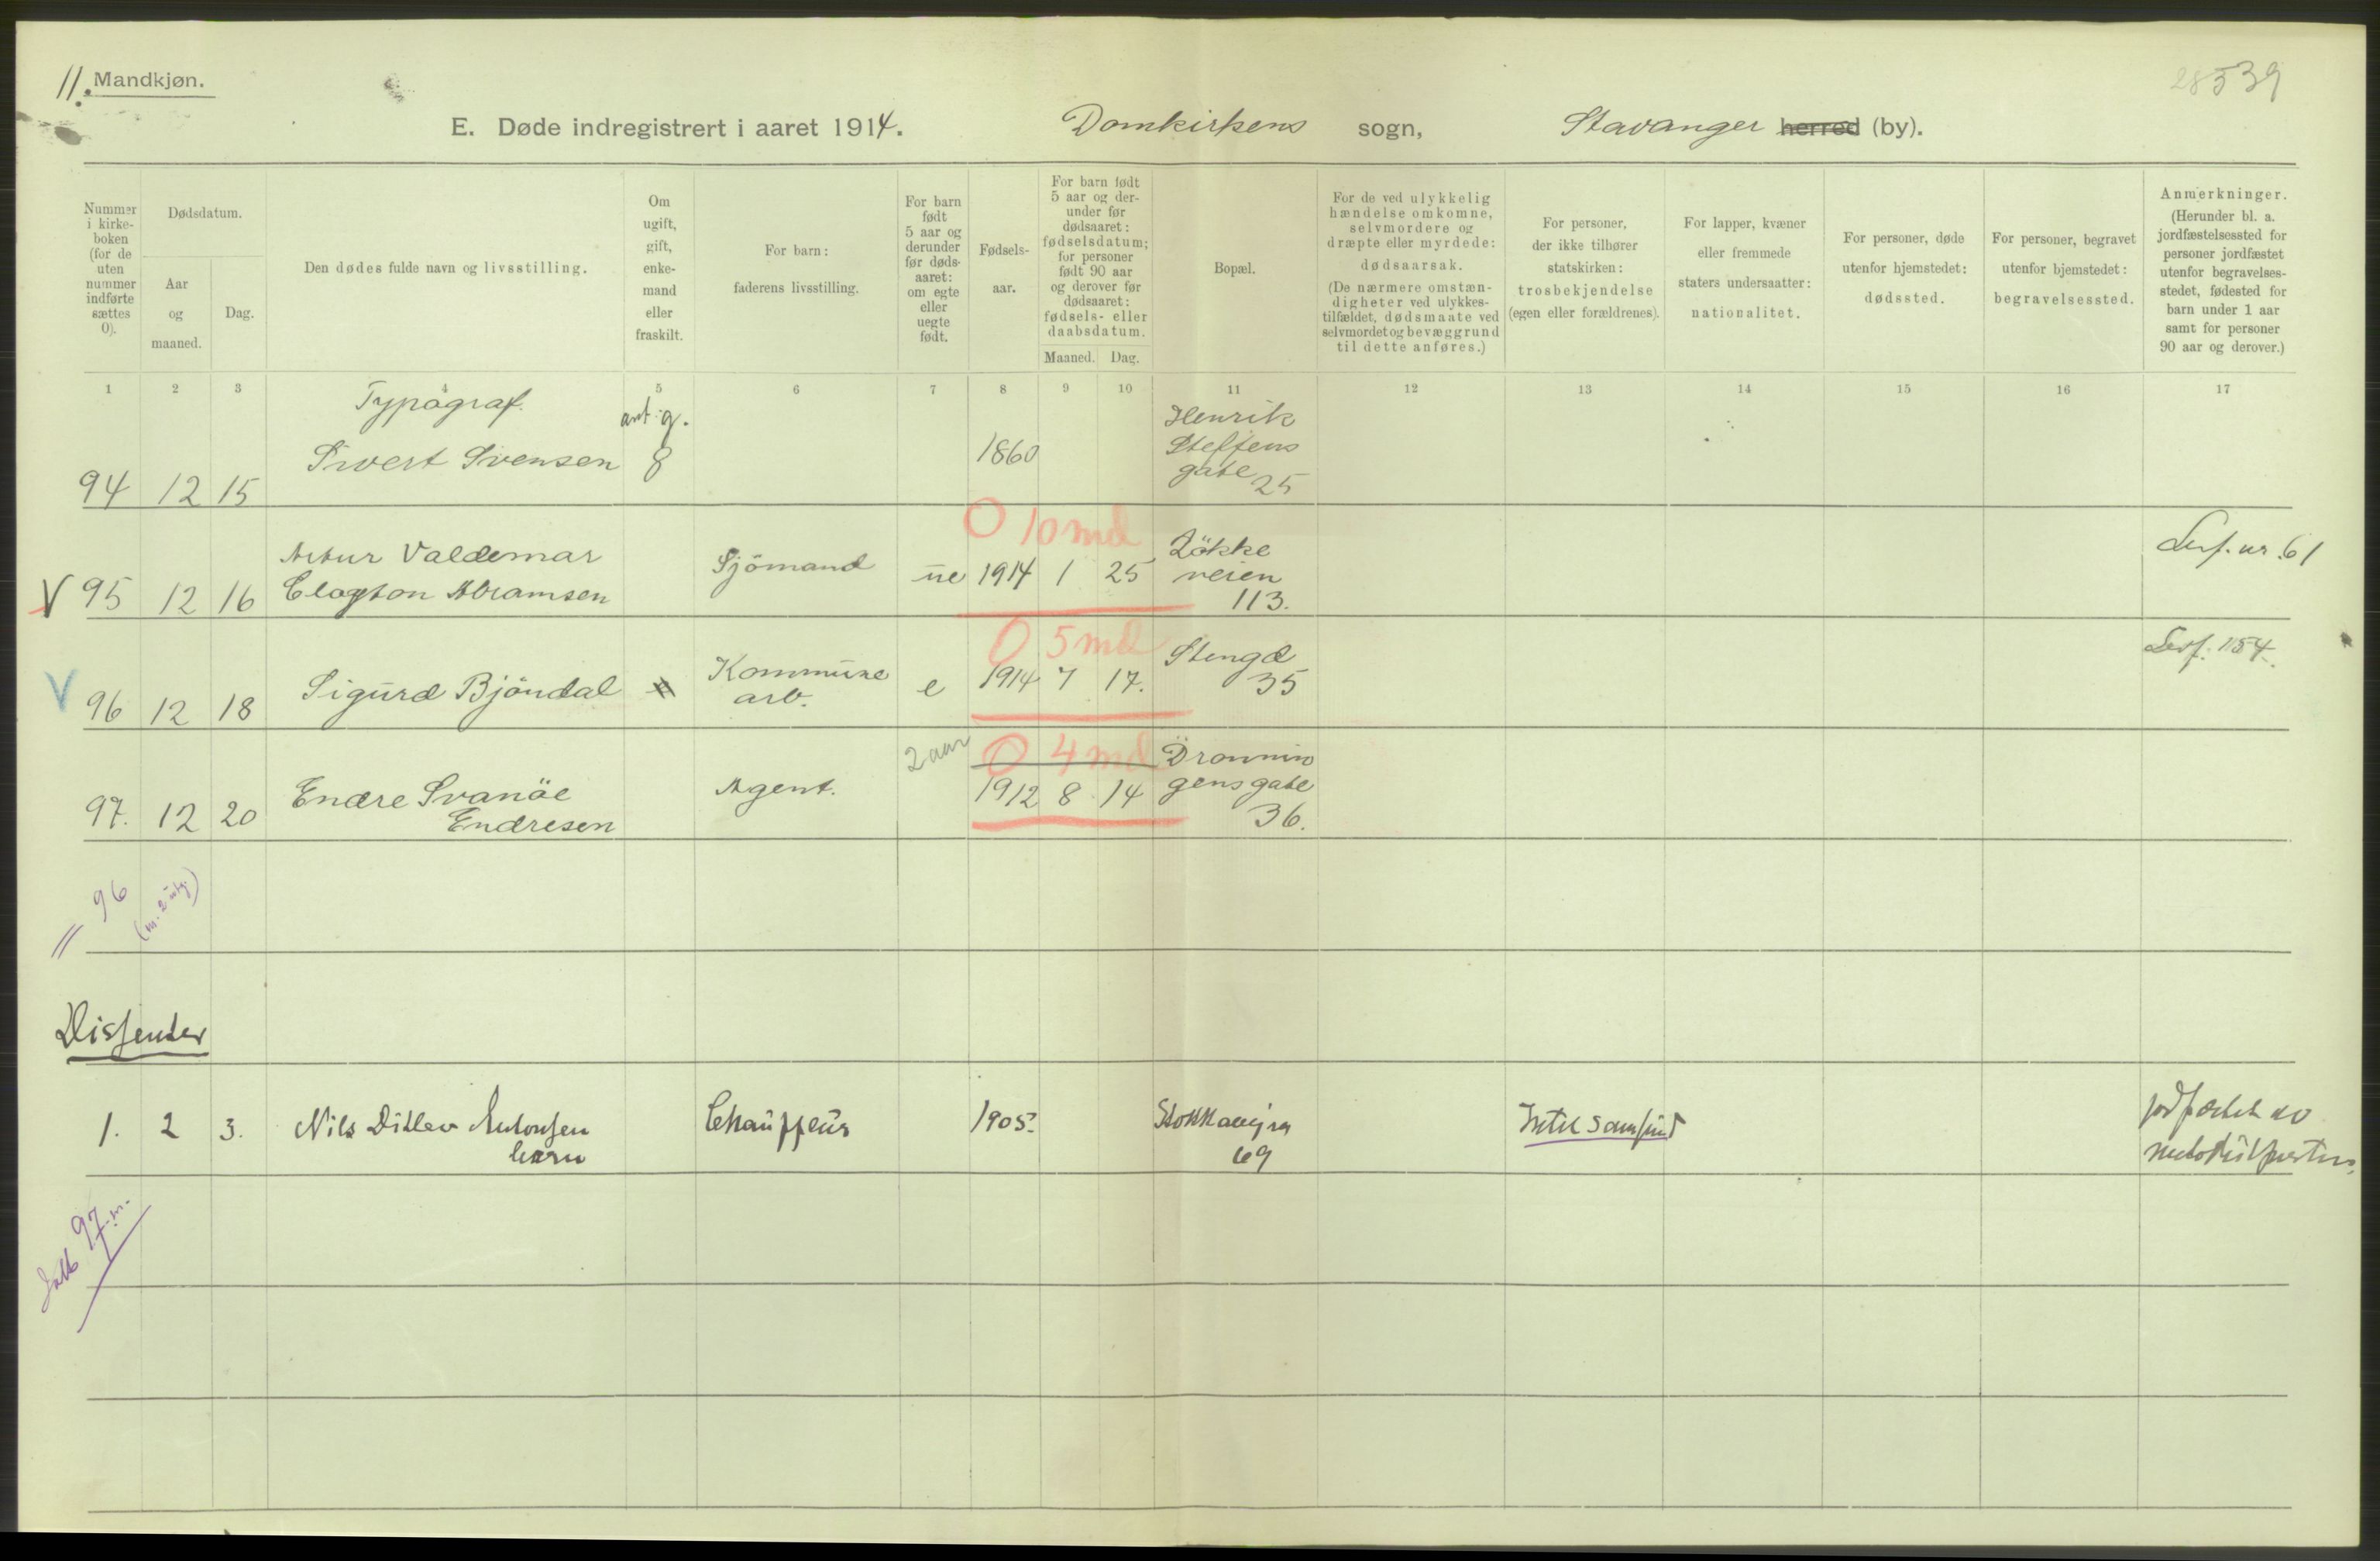 11. Mandkjøn.
28539
E. Døde indregistrert i aaret 1914. Domkirkens sogn, Stavanger herred (by).
Nummer i kirkeboken (for de uten nummer indførte sættes 0).
Dødsdatum.
Aar og maaned.
Dag.
Den dødes fulde navn og livsstilling.
Om ugift, gift, enkemand eller fraskilt.
For barn: faderens livsstilling.
For barn født 5 aar og derunder før dødsaaret: om egte eller uegte født.
Fødselsaar.
For barn født 5 aar og derunder før dødsaaret: fødselsdatum; for personer født 90 aar og derover før dødsaaret: fødsels- eller daabsdatum.
Maaned. Dag.
Bopæl.
For de ved ulykkelig hændelse omkomne, selvmordere og dræpte eller myrdede: dødsaarsak. (De nærmere omstændigheter ved ulykkestilfældet, dødsmaate ved selvmordet og bevæggrund til dette anføres.)
For personer, der ikke tilhører statskirken: trosbekjendelse (egen eller forældrenes).
For lapper, kvæner eller fremmede staters undersaatter: nationalitet.
For personer, døde utenfor hjemstedet: dødssted.
For personer, begravet utenfor hjemstedet: begravelsessted.
Anmerkninger. (Herunder bl. a. jordfæstelsessted for personer jordfæstet utenfor begravelsesstedet, fødested for barn under 1 aar samt for personer 90 aar og derover.)
1 2 3 4 5 6 7 8 9 10 11 12 13 14 15 16 17
Typograf. ant. g. Henrik
Sivert Svensen 8 1860 Steffens
94 12 15 gate 25
0 10 md
Artur Valdemar Sjömand ue 1914 1 25 Lökke
V 95 12 16 Clayton Abramsen veien
113.
nr. 61
0 5 md
V 96 12 18 Sigurd Bjöndal Kommune e 1914 7 17. Stengd
arb. 35
154.
2 aar 0 4 md Dronnin
97. 12 20 Endre Svanöe Agent. 1912 8 14 gens gate
Endresen 36.
= 96
Dissenter
1. 2 3. Nils Ditlev Antonsen Chauffeur 1905. Intet samfund jordfæstet av
69
97 m.